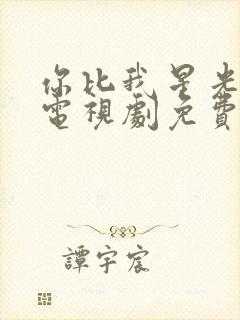 你比我星光
電視劇免費
譚宇宸